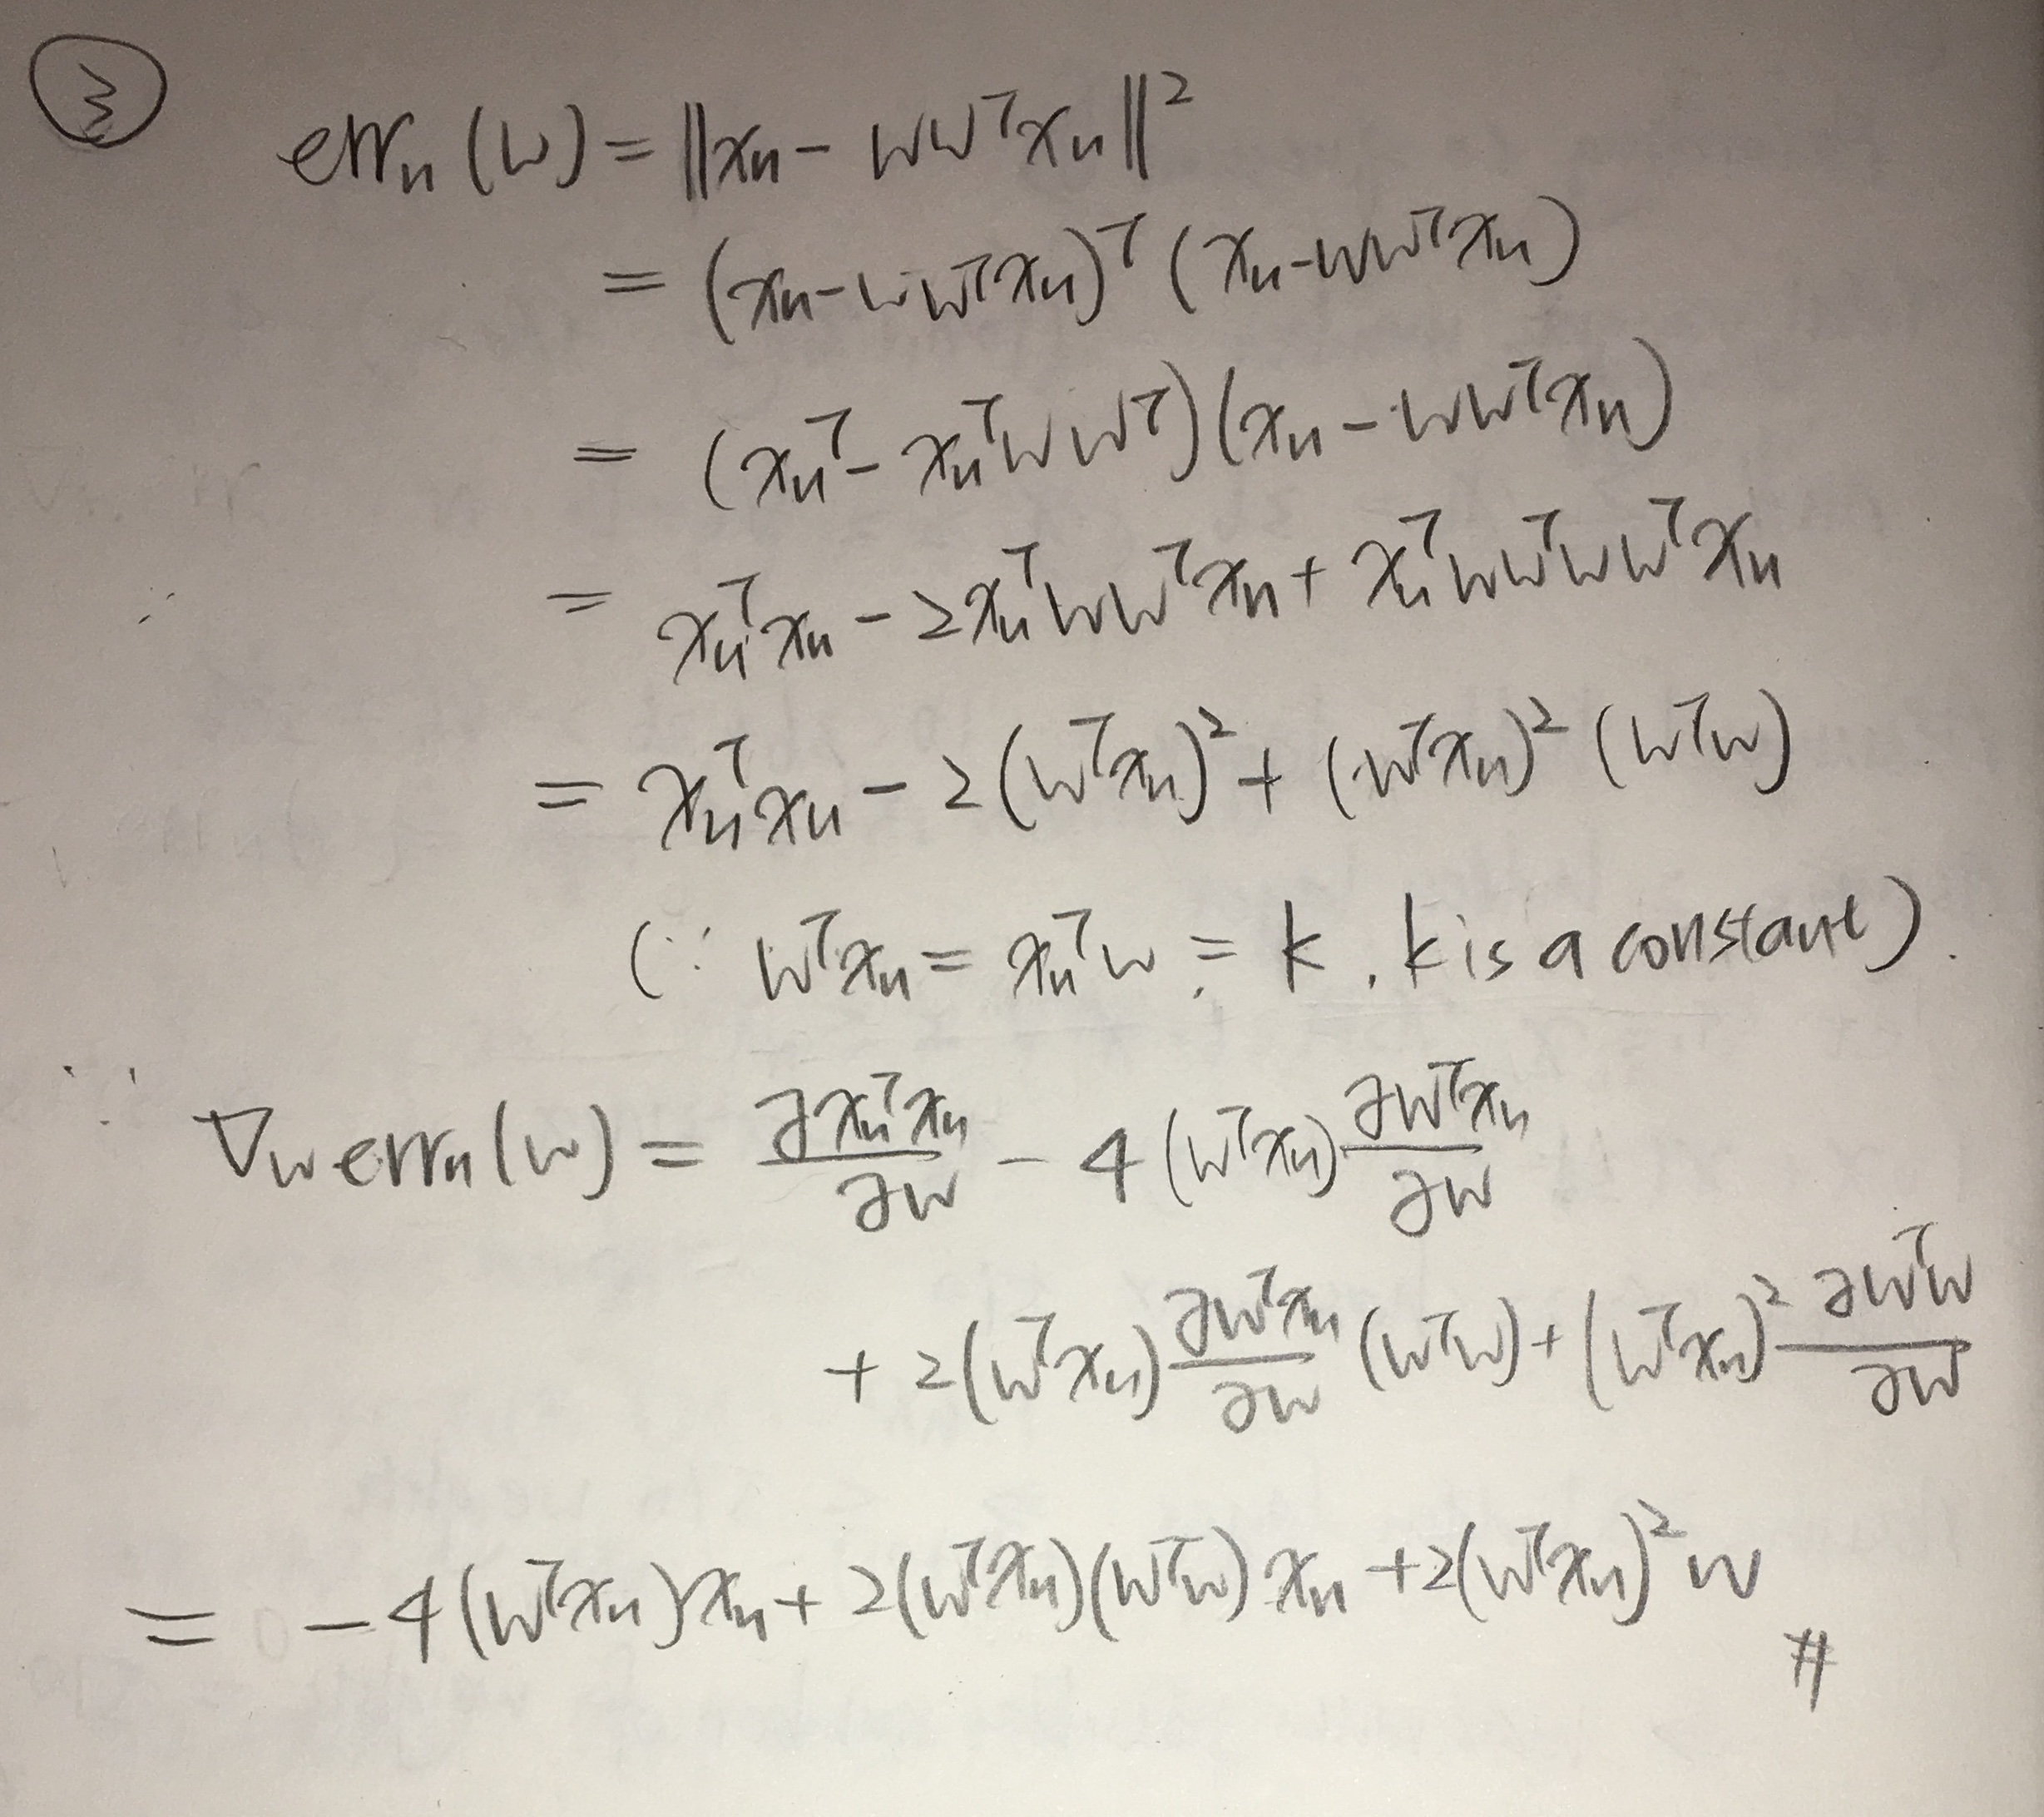 ③ errₙ(w) = ||xₙ - wwᵀxₙ||²
= (xₙ - wwᵀxₙ)ᵀ (xₙ - wwᵀxₙ)
= (xₙᵀ - xₙᵀwwᵀ)(xₙ - wwᵀxₙ)
= xₙᵀxₙ - 2xₙᵀwwᵀxₙ + xₙᵀwwᵀwwᵀxₙ
= xₙᵀxₙ - 2(wᵀxₙ)² + (wᵀxₙ)² (wᵀw)
(∵ wᵀxₙ = xₙᵀw = k, k is a constant).
∇w errₙ(w) = ∂xₙᵀxₙ/∂w - 4(wᵀxₙ) ∂wᵀxₙ/∂w
+ 2(wᵀxₙ) ∂wᵀxₙ/∂w (wᵀw) + (wᵀxₙ)² ∂wᵀw/∂w
= -4(wᵀxₙ)xₙ + 2(wᵀxₙ)(wᵀw)xₙ + 2(wᵀxₙ)²w #